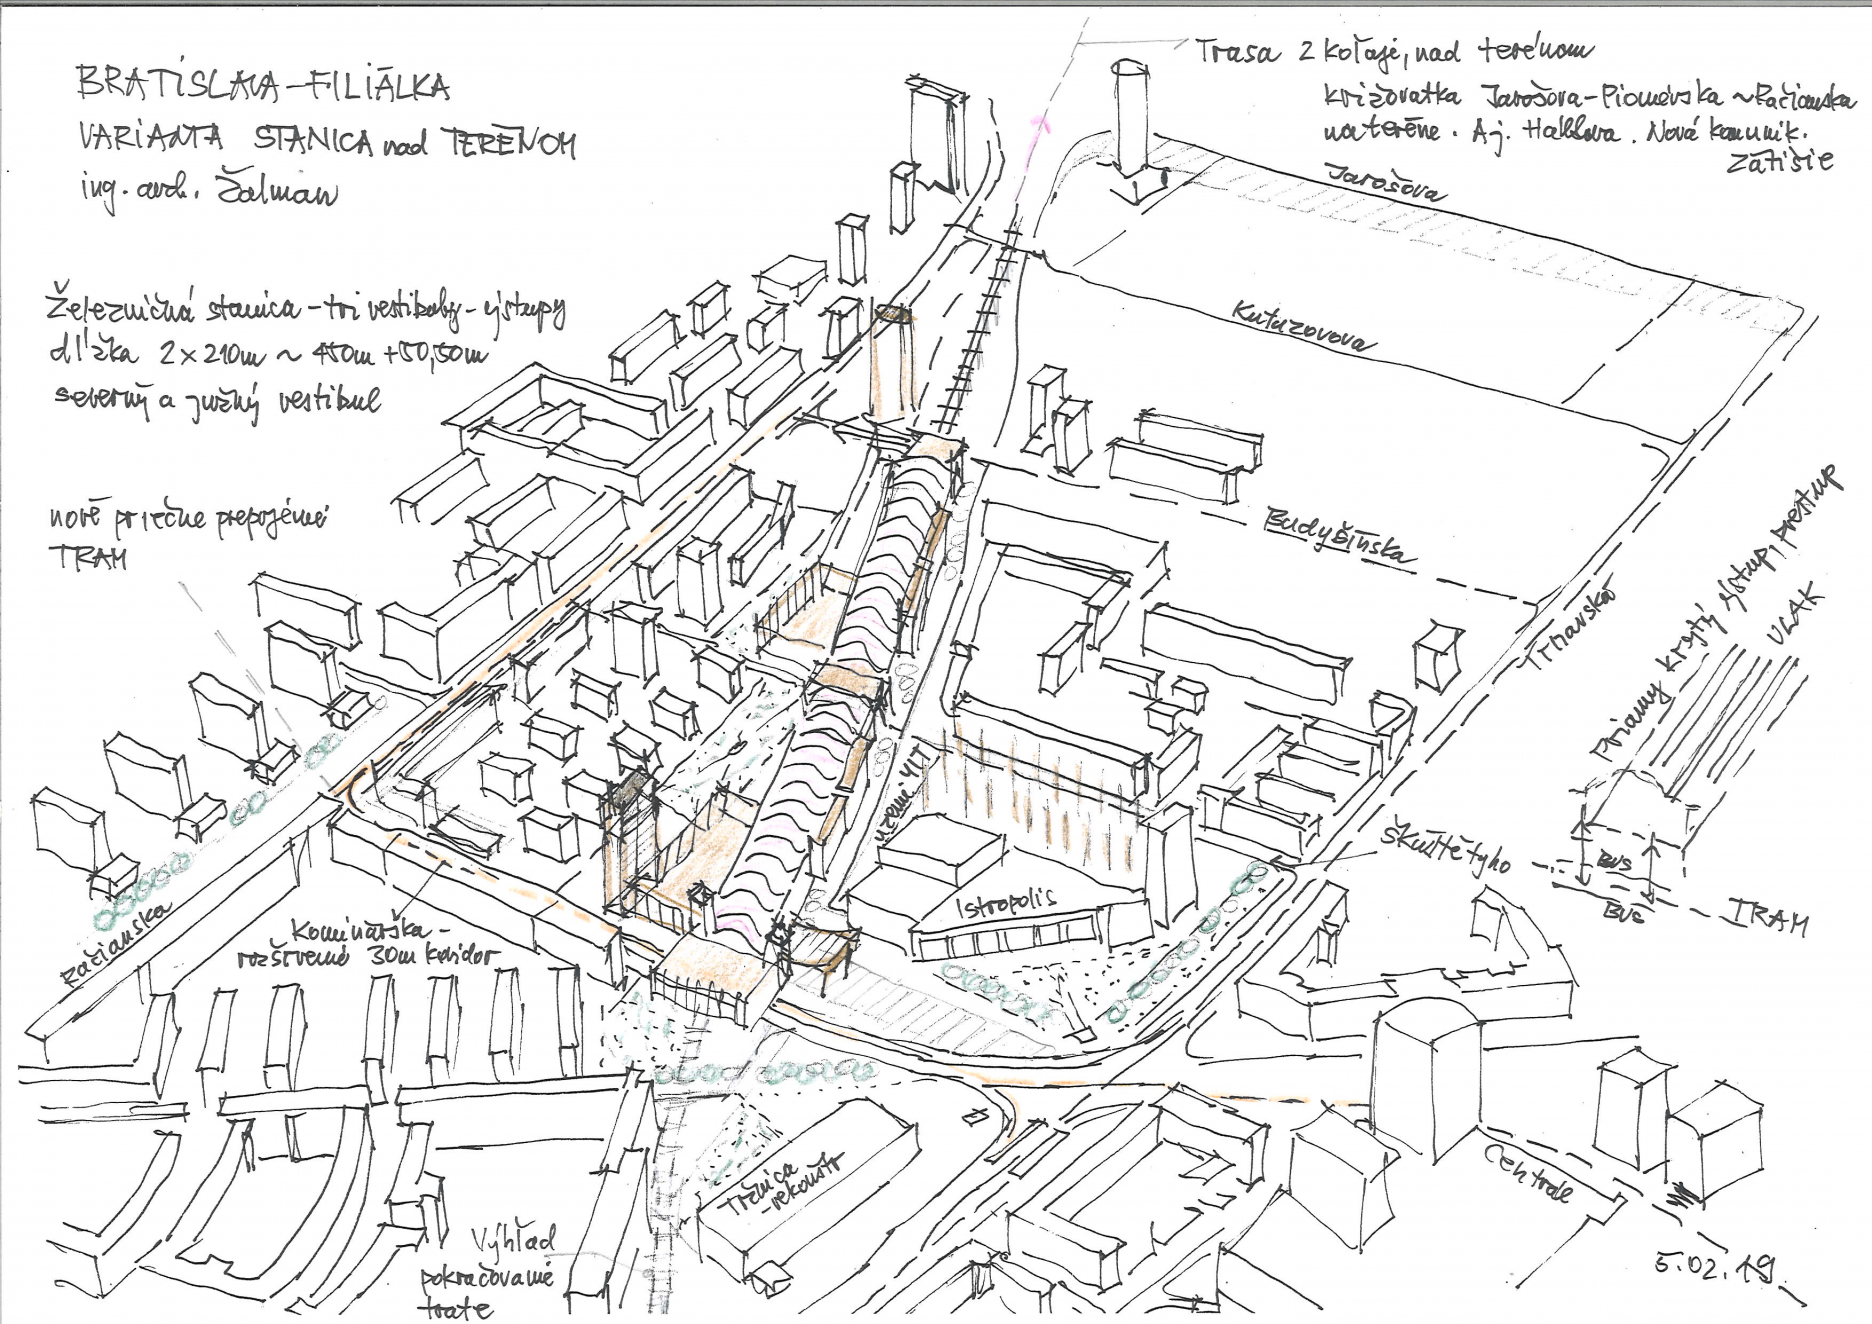 BRATISLAVA-FILIÁLKA
VARIANTA STANICA nad TERÉNOM
ing. arch. Žalman
Trasa 2 koľaje, nad terénom
križovatka Jarošova-Pionierska ~ Račianska
na teréne. Aj. Hálkova. Nová komunik.
Zátišie
Jarošova
Železničná stanica - tri vestibuly - výstupy
dĺžka 2x210m ~ 450m +50,50m
severný a južný vestibul
Kutuzovova
nové priečne prepojenie
TRAM
Budyšínska
Trnavská
Priamy krytý výstup, prestup
VLAK
určené YIT
Škultétyho
BUS
BUS
TRAM
Istropolis
Račianska
Kominárska -
rozšírenie 30m koridor
Tržnica
-rekonštr
Centrale
Výhľad
pokračovanie
trate
5.02.19